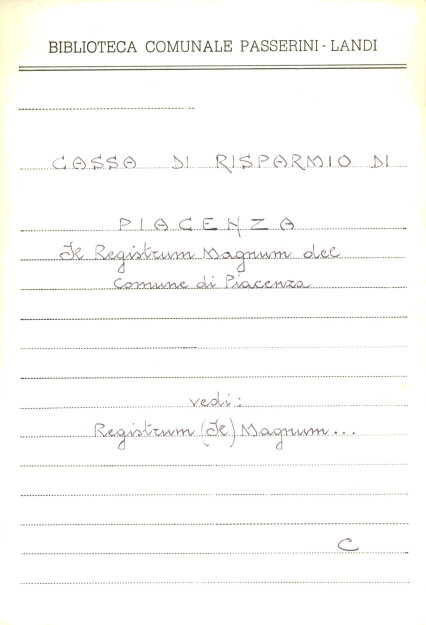 BIBLIOTECA COMUNALE PASSERINI - LANDI
CASSA DI RISPARMIO DI
PIACENZA
Il Registrum Magnum del
Comune di Piacenza
vedi:
Registrum (Il) Magnum...
C